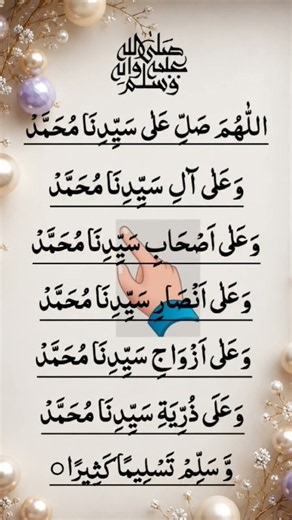 صلى الله عليه وآله وسلم
اللّٰهُمَ صَلِّ عَلٰى سَيِّدِنَا مُحَمَّدْ
وَعَلٰى آلِ سَيِّدِنَا مُحَمَّدْ
وَعَلٰى اَصْحَابِ سَيِّدِنَا مُحَمَّدْ
وَعَلٰى اَنْصَارِ سَيِّدِنَا مُحَمَّدْ
وَعَلٰى اَزْوَاجِ سَيِّدِنَا مُحَمَّدْ
وَعَلَى ذُرِّيَةِ سَيِّدِنَا مُحَمَّدْ
وَّسَلِّمْ تَسْلِيمًا كَثِيرًا○